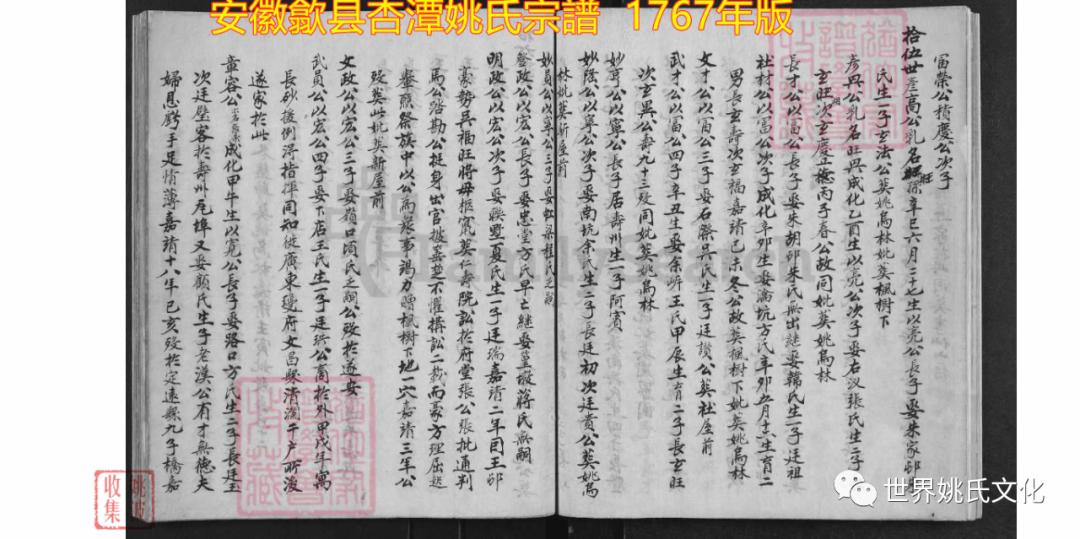 安徽歙县杏潭姚氏宗譜 1767年版
富榮公積慶公次子
拾伍世彦高公乳名旺孫辛巳六月三十七生以亮公長子娶朱家邨
氏生一子玄法公葬姚烏林妣葬楓樹下
彦興公乳名旺興成化乙酉生以亮公次子娶右汊張氏生二子長
玄旺次玄慶正德丙子春公故同妣葬姚烏林
長才公以富公長子娶朱胡邱朱氏無出継娶韓氏生一子廷祖
社材公以富公次子成化辛卯生娶瀹坑方氏辛卯五月十六生育二
男長玄壽次玄福嘉靖己未冬公故葬楓樹下妣葬姚烏林
文才公以富公三子娶石際吳氏生一子廷讃公葬社屋前
武才公以富公四子辛丑生娶余岍王氏甲辰生育二子長玄旺
次玄異公壽九十三歿同妣葬姚烏林
妙可公以寧公長子居壽州生一子阿賓
妙隆公以寧公次子娶南坑余氏生二子長廷初次廷貴公葬姚烏
林妣葬新屋前
妙員公以寧公三子娶虹梁程氏之嗣
啓政公以宏公長子娶忠堂方氏早亡継娶篁墩蔣氏無嗣
明政公以宏公次子娶聯墅夏氏生一子廷瑞嘉靖二年因王邨
豪勢吳福旺將母柩竄葬仁壽院訟於府堂張公張批通判
馬公踏勘公挺身出官披蓁楚不懼搆訟二載而豪方理屈起
轝聯祭族中以公為衆事竭力贈楓樹下地一穴嘉靖三年公
歿葬此妣葬新屋前
文政公以宏公三子娶嶺口項氏之嗣公歿於遂安
武員公以宏公四子娶下店王氏生一子廷公商於外甲戌年寓
長砂援例淂指揮同知徙廣東瓊府文昌縣清瀾千户所後
遂家於此
童容公成化甲午生以寬公長子娶路口方氏生二子長廷玉
次廷璧客於壽州瓦埠又娶顧氏生子老漢公有才無德夫
婦恩虧手足情薄嘉靖十八年已亥歿於定遠縣九子橋嘉
姚氏
收集
世界姚氏文化